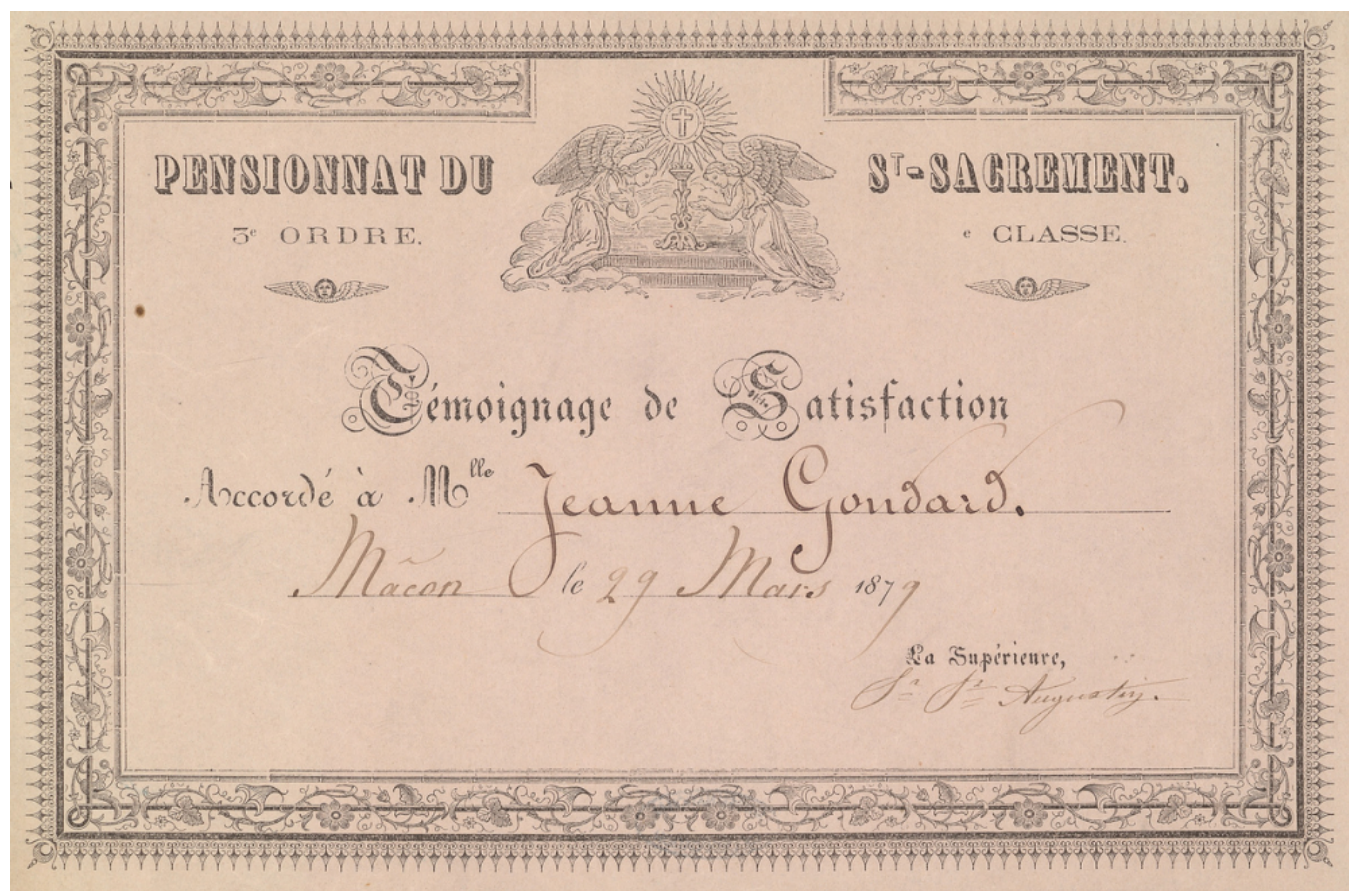 PENSIONNAT DU ST-SACREMENT.
3e ORDRE. e CLASSE.
Témoignage de Satisfaction
Accordé à Mlle Jeanne Gondard.
Mâcon le 29 Mars 1879
La Supérieure,
Sr St Augustin.